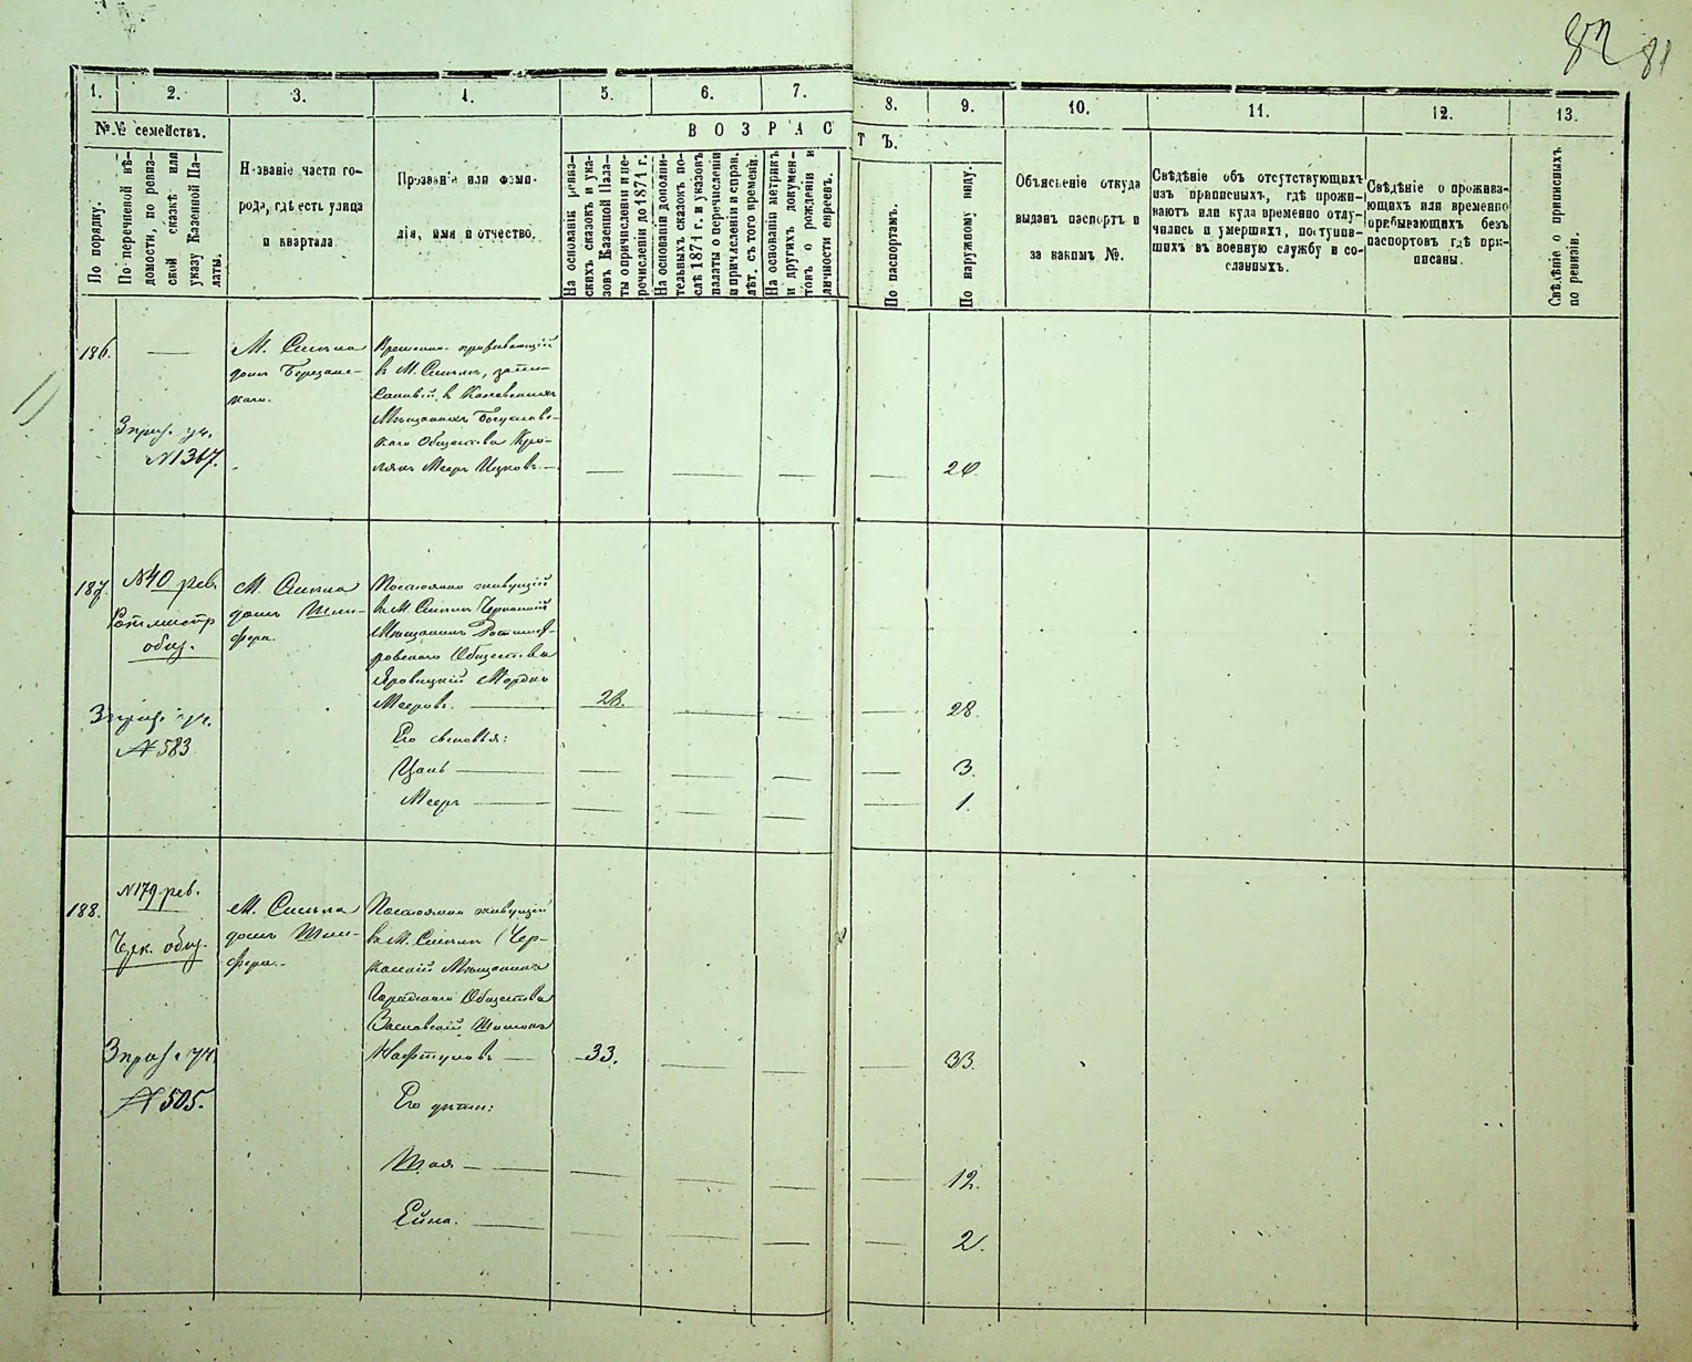 82 81
1. 2. 3. 4. 5. 6. 7. 8. 9. 10. 11. 12. 13.
№№ семействъ.
По порядку.
По перечневой вѣ-
домости, по ревиз-
ской сказкѣ или
указу Казенной Па-
латы.
Названіе части го-
рода, гдѣ есть улица
и квартала
Прозваніе или фами-
лія, имя и отчество.
ВОЗРАСТЪ.
На основаніи ревиз-
скихъ сказокъ и ука-
зовъ Казенной Пала-
ты о причисленіи и пе-
речисленіи до 1871 г.
На основаніи дополни-
тельныхъ сказокъ по-
слѣ 1871 г. и указовъ
палаты о перечисленіи
и причисленіи и справ.
лѣт. съ того времени.
На основаніи метрикъ
и другихъ докумен-
товъ о рожденіи и
личности евреевъ.
По паспортамъ.
По наружному виду.
Объясненіе откуда
выданъ паспортъ и
за какимъ №.
Свѣдѣніе объ отсутствующихъ
изъ приписныхъ, гдѣ прожи-
ваютъ или куда временно отлу-
чились и умершихъ, поступив-
шихъ въ военную службу и со-
сланныхъ.
Свѣдѣніе о прожива-
ющихъ или временно
пребывающихъ безъ
паспортовъ гдѣ при-
писаны.
Свѣдѣніе о приписныхъ
по ревизіи.
186. —
3 приз. уч.
№ 1367.
М. Смѣла
домъ Березан-
скаго.
Временно-проживающій
въ М. Смѣлѣ, запи-
санный въ Каневскихъ
Мѣщанахъ Богуслав-
скаго Общества Кро-
ликъ Мееръ Ицковъ — — — — —
187.
№ 40 рев.
Ротмистр
общ.
3 приз. уч.
№ 583
М. Смѣла
домъ Шли-
фера.
Постоянно живущій
въ М. Смѣлѣ Черкасскій
Мѣщанинъ Ротмист-
ровскаго Общества
Яровицкій Мордко
Мееровъ. — 28. — — — 28.
Его сыновья:
— — — — — 3.
Мееръ — — — — — 1.
188.
№ 179 рев.
Черк. общ.
3 приз. уч.
№ 505.
М. Смѣла
домъ Шли-
фера.
Постоянно живущій
въ М. Смѣлѣ Чер-
касскій Мѣщанинъ
Городскаго Общества
Заславскій Шимонъ
Нафтуловъ — 33. — — — 33.
Его дѣти:
Шая — — — — — 12.
— — — — — 2.